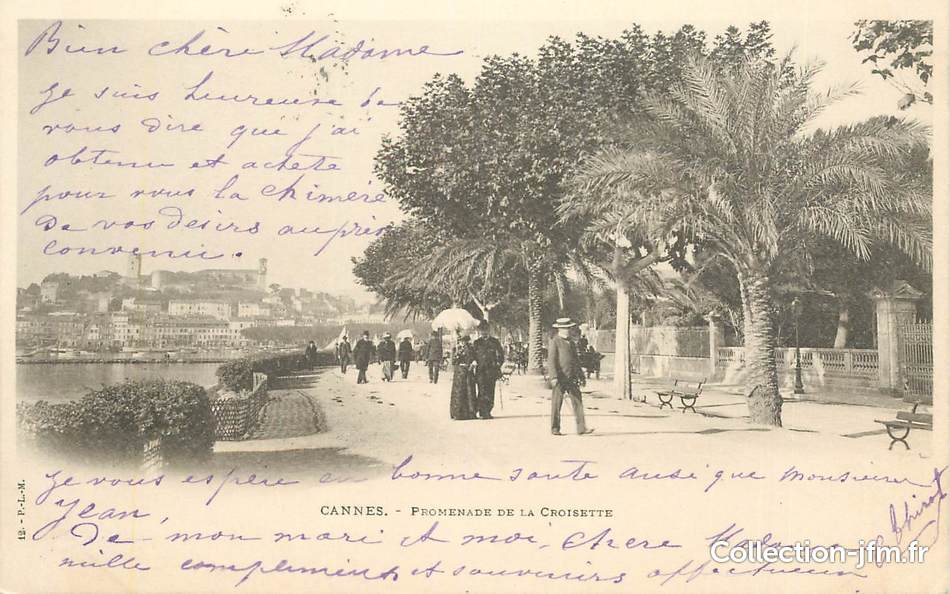 Bien chère Madame
Je suis heureuse de
vous dire que j'ai
obtenu et acheté
pour vous la chimère
De vos désirs au prix
convenu.
Je vous espère en bonne santé ausi que monsieur
Jean,
De mon mari et moi, chère Madame
mille compliments et souvenirs affectueux
12. - P.-L.-M.
CANNES. - PROMENADE DE LA CROISETTE
Collection-jfm.fr